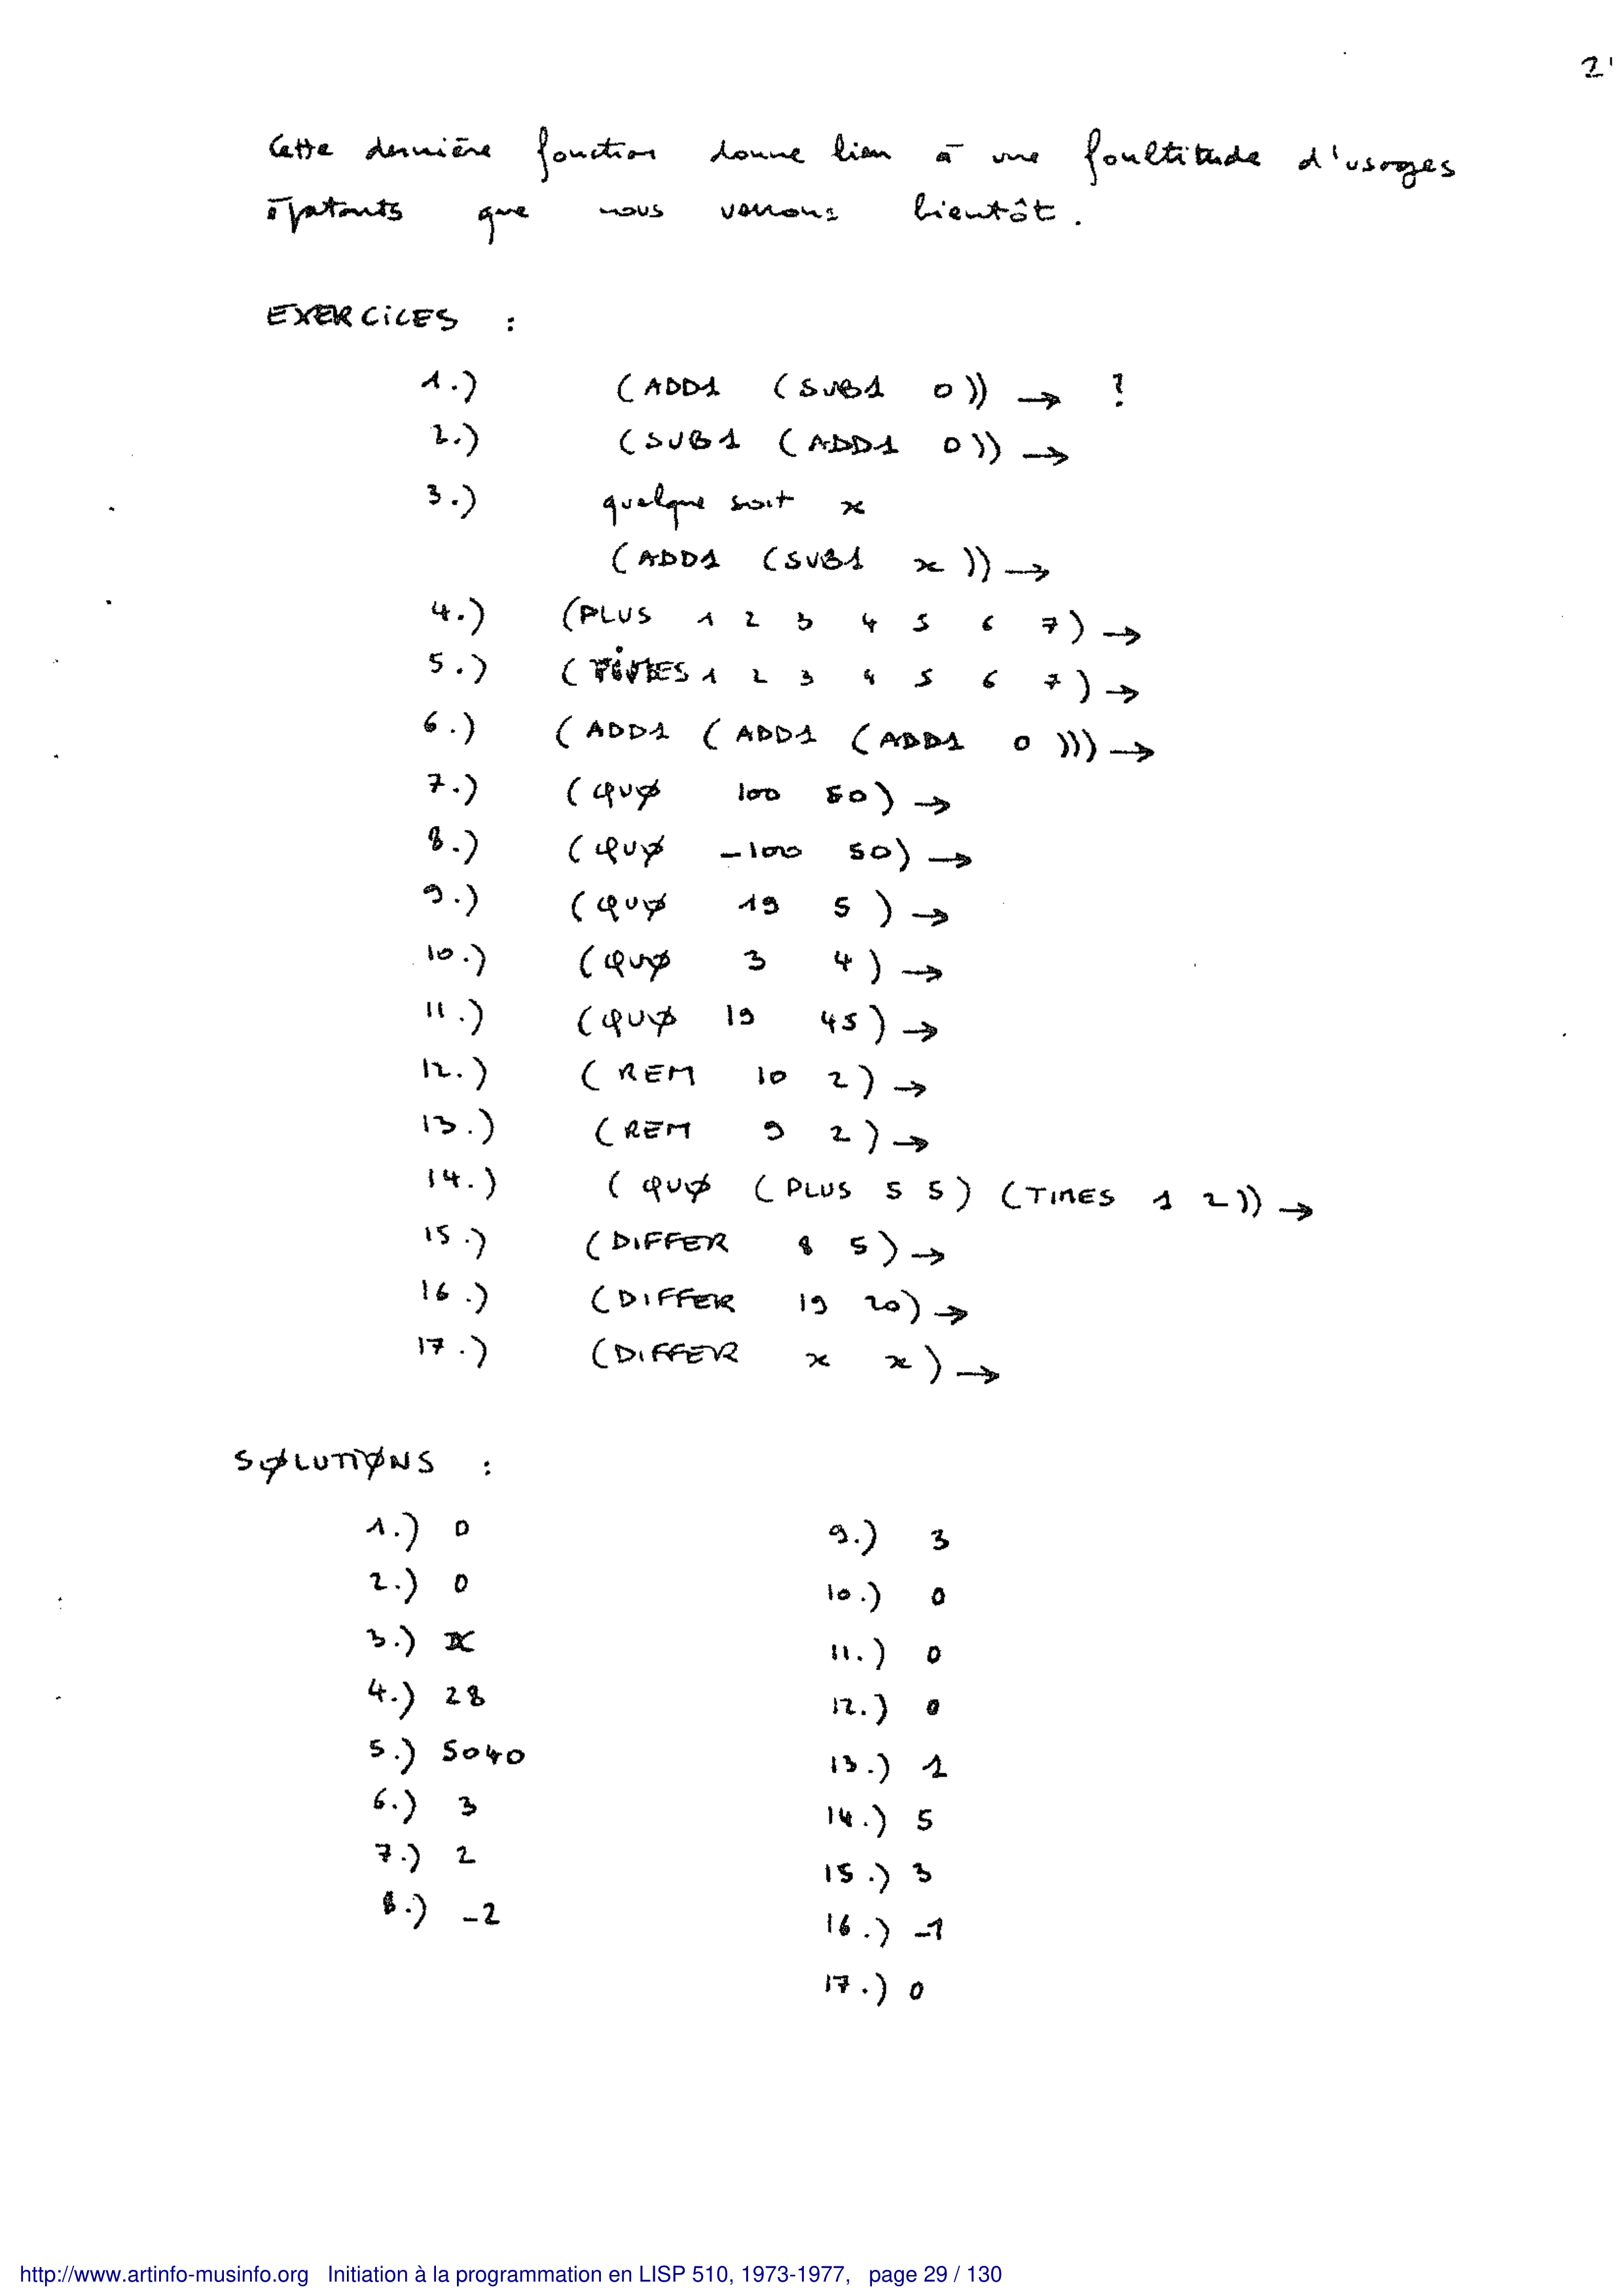 2'
Cette dernière fonction donne lieu à une foultitude d'usages
épatants que nous verrons bientôt.
EXERCICES :
1.) (ADD1 (SUB1 0)) → ?
2.) (SUB1 (ADD1 0)) →
3.) quelque soit x
(ADD1 (SUB1 x)) →
4.) (PLUS 1 2 3 4 5 6 7) →
5.) (TIMES 1 2 3 4 5 6 7) →
6.) (ADD1 (ADD1 (ADD1 0))) →
7.) (QUØ 100 50) →
8.) (QUØ -100 50) →
9.) (QUØ 19 5) →
10.) (QUØ 3 4) →
11.) (QUØ 19 45) →
12.) (REM 10 2) →
13.) (REM 9 2) →
14.) (QUØ (PLUS 5 5) (TIMES 1 2)) →
15.) (DIFFER 8 5) →
16.) (DIFFER 19 20) →
17.) (DIFFER x x) →
SØLUTIØNS :
1.) 0
2.) 0
3.) x
4.) 28
5.) 5040
6.) 3
7.) 2
8.) -2
9.) 3
10.) 0
11.) 0
12.) 0
13.) 1
14.) 5
15.) 3
16.) -1
17.) 0
http://www.artinfo-musinfo.org Initiation à la programmation en LISP 510, 1973-1977, page 29 / 130